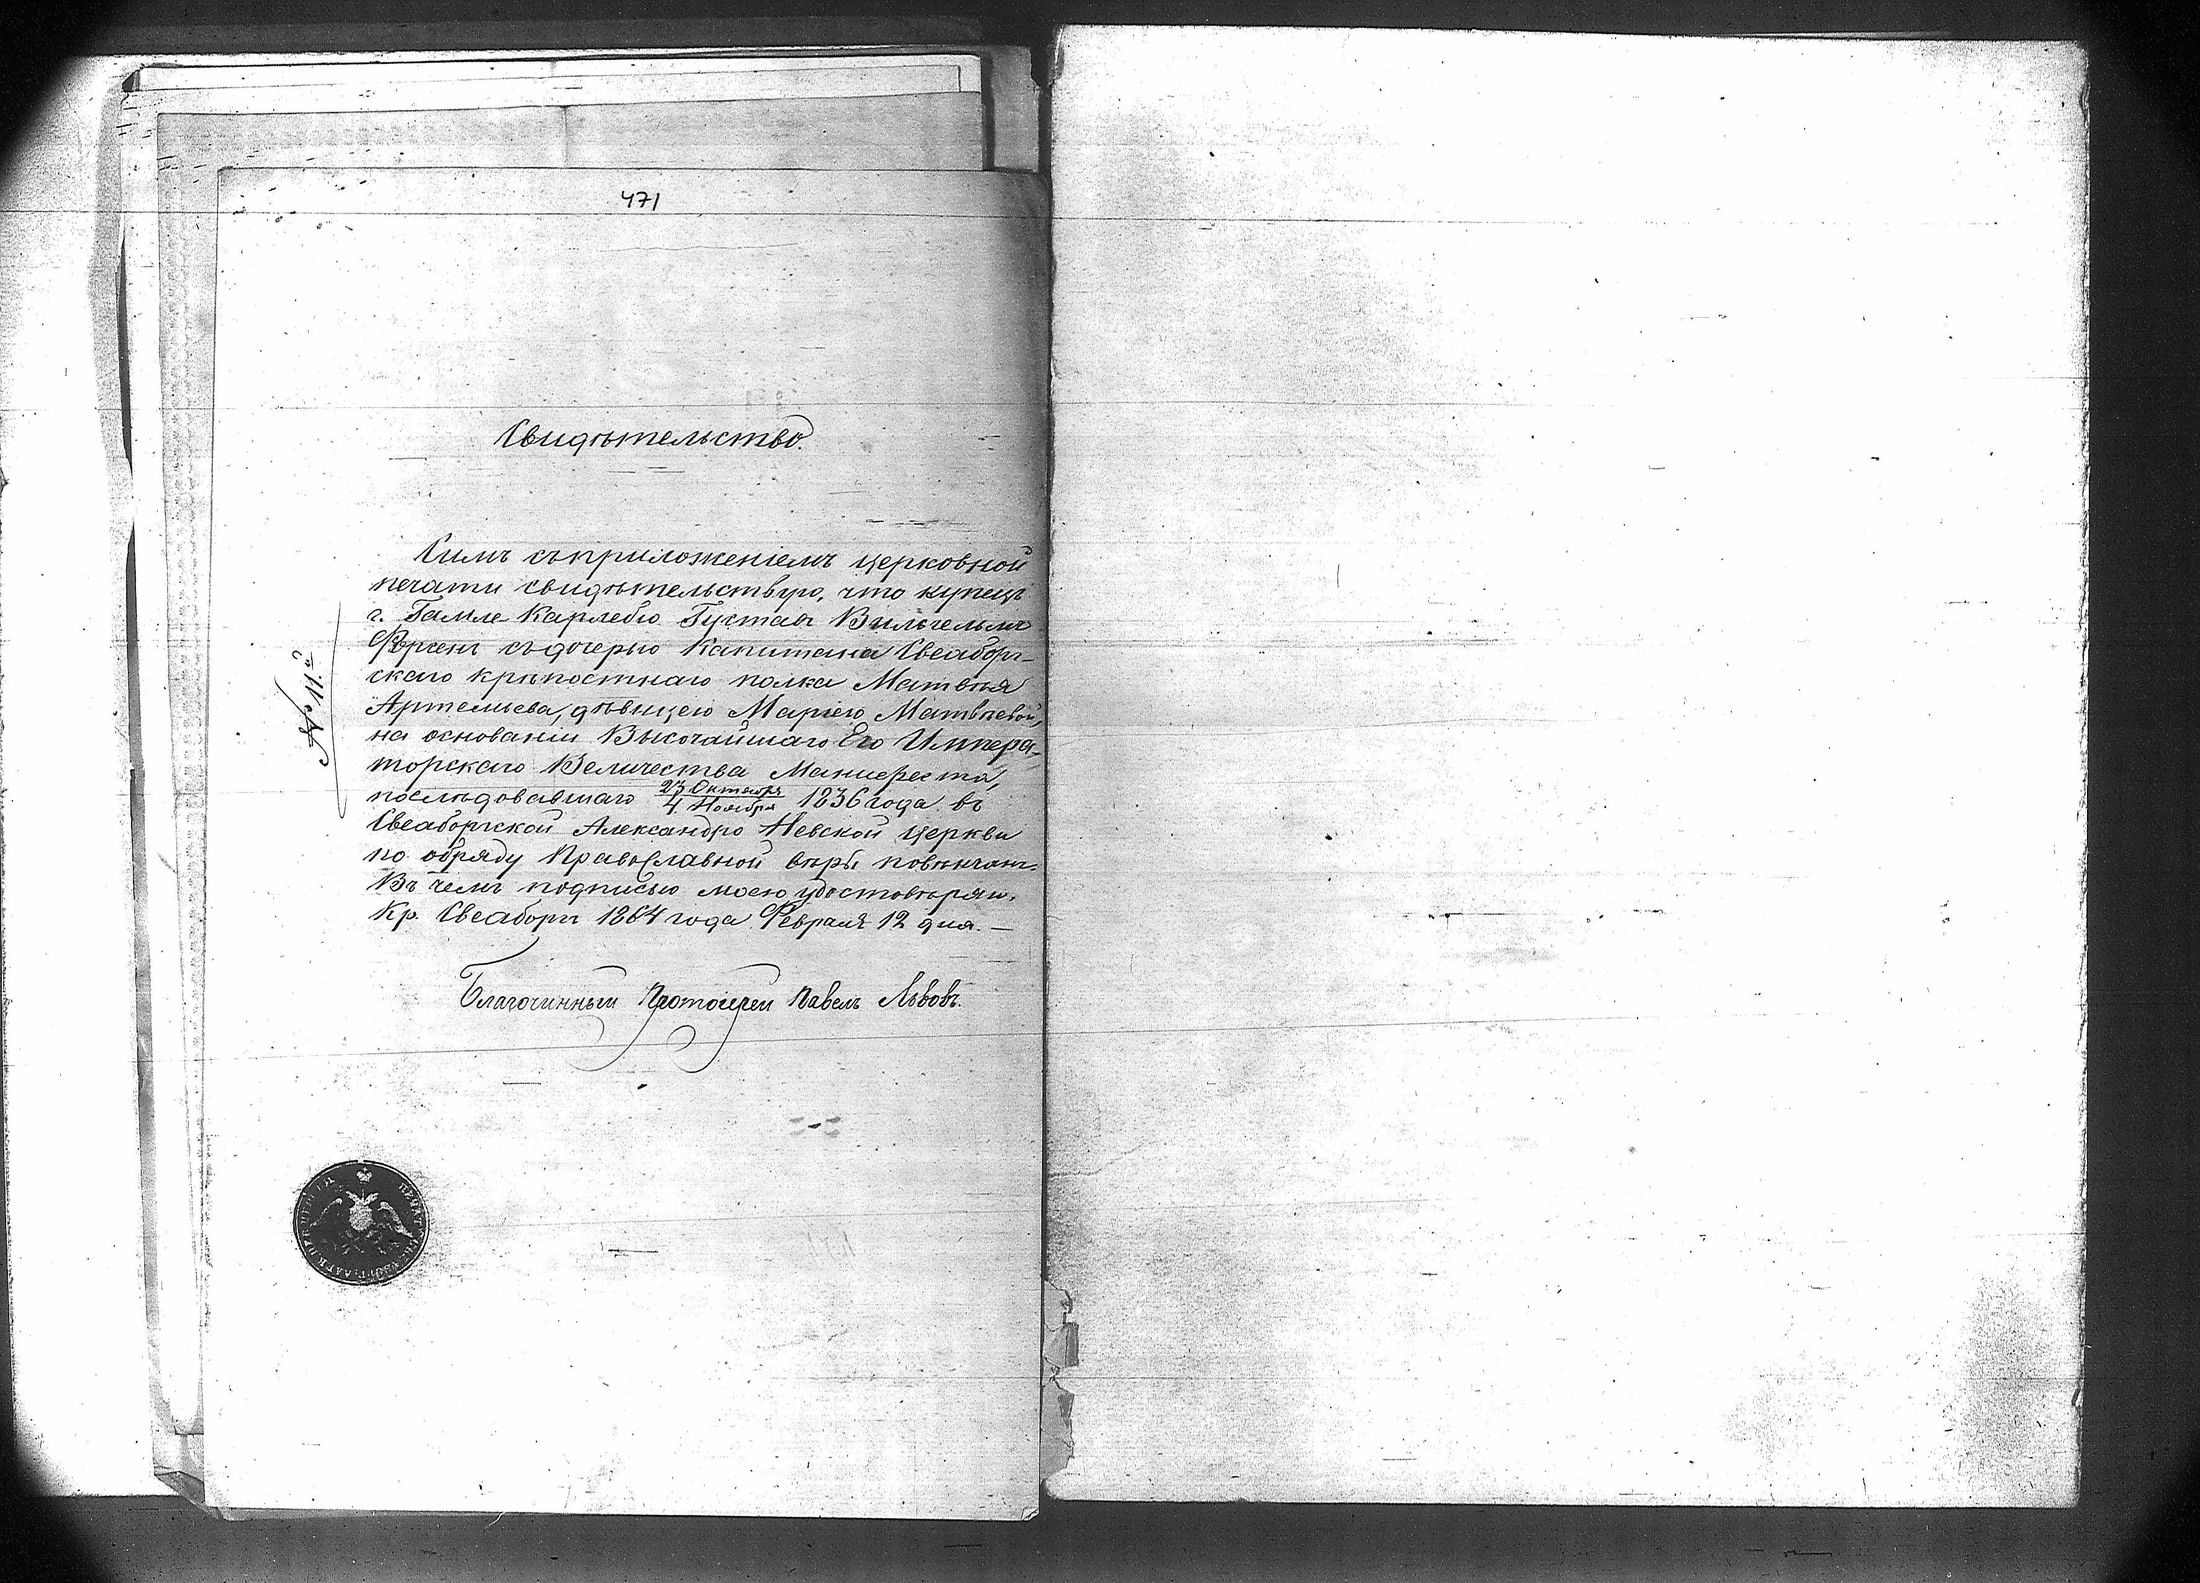 471
Свидѣтельство.
№ 11.й
Симъ съ приложеніемъ церковной
печати свидѣтельствую, что купецъ
г. Гамле-Карлебю Густавъ Вильгельмъ
съ дочерью Капитана Свеаборг-
скаго крѣпостнаго полка Матвѣя
Артемьева, дѣвицею Маріею Матвѣевой,
на основаніи Высочайшаго Его Импера-
торскаго Величества Манифеста,
послѣдовавшаго 23 Октября / 4 Ноября 1836 года въ
Свеаборгской Александро Невской церкви
по обряду Православной вѣры повѣнчанъ.
Въ чемъ подписью моею удостовѣряю.
Кр. Свеаборгъ 1864 года Февраля 12 дня. —
Благочинный Протоіерей Павелъ Львовъ.